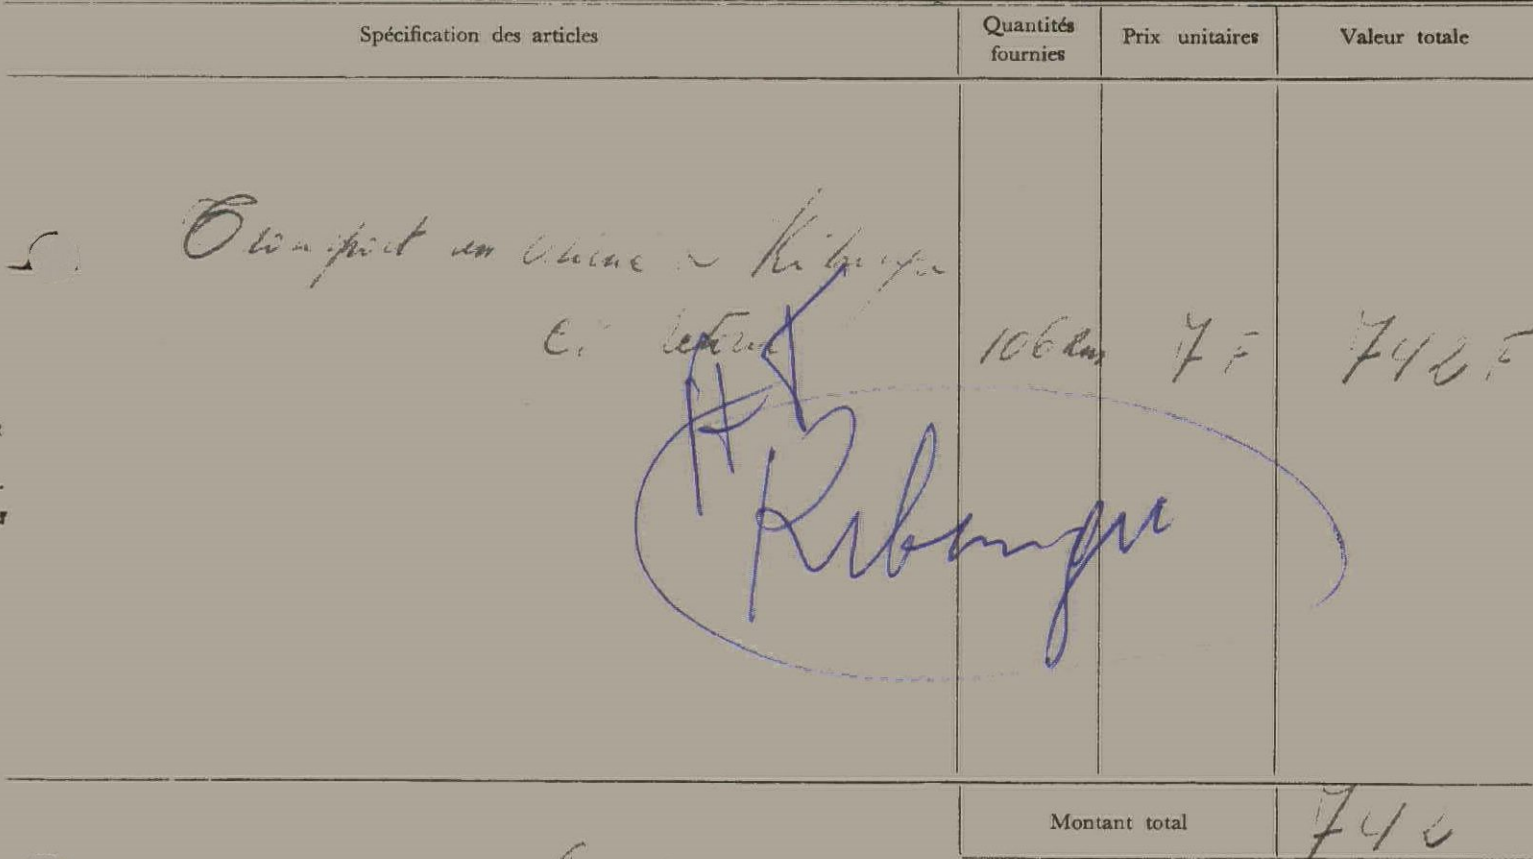 Spécification des articles Quantités fournies Prix unitaires Valeur totale
Transport en à Kibungu
et retour 106 km 7 F 742 F
Kibungu
Montant total 742